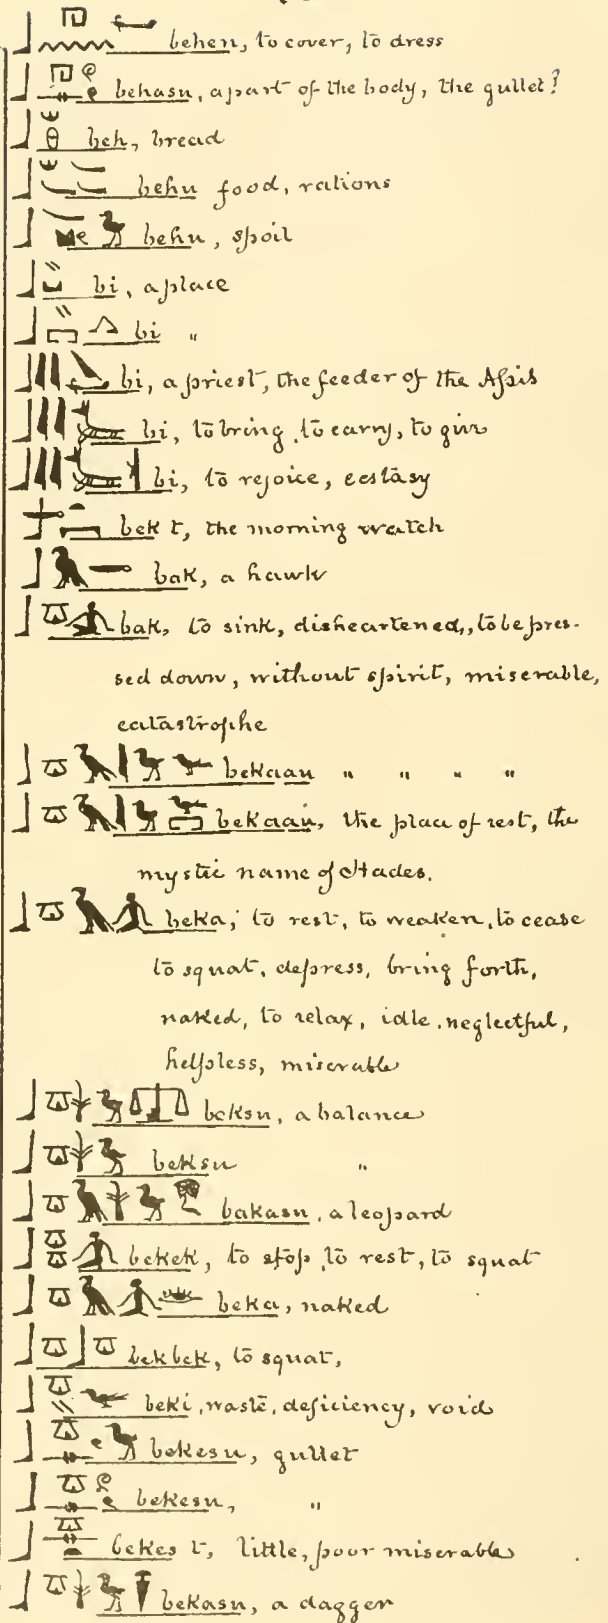 behen, to cover, to dress
behasu, a part of the body, the gullet?
beh, bread
behu food, rations
behu, spoil
bi, a place
bi "
bi, a priest, the feeder of the Apis
bi, to bring, to carry, to give
bi, to rejoice, ecstasy
bek t, the morning watch
bak, a hawk
bak, to sink, disheartened, to be pres-
sed down, without spirit, miserable,
catastrophe
bekaau " " " "
bekaau, the place of rest, the
mystic name of Hades.
beka, to rest, to weaken, to cease
to squat, depress, bring forth,
naked, to relax, idle, neglectful,
helpless, miserable
beksu, a balance
beksu "
bakasu, a leopard
bekek, to stop, to rest, to squat
beka, naked
bekbek, to squat,
beki, waste, deficiency, void
bekesu, gullet
bekesu, "
bekes t, little, poor miserable
bekasu, a dagger